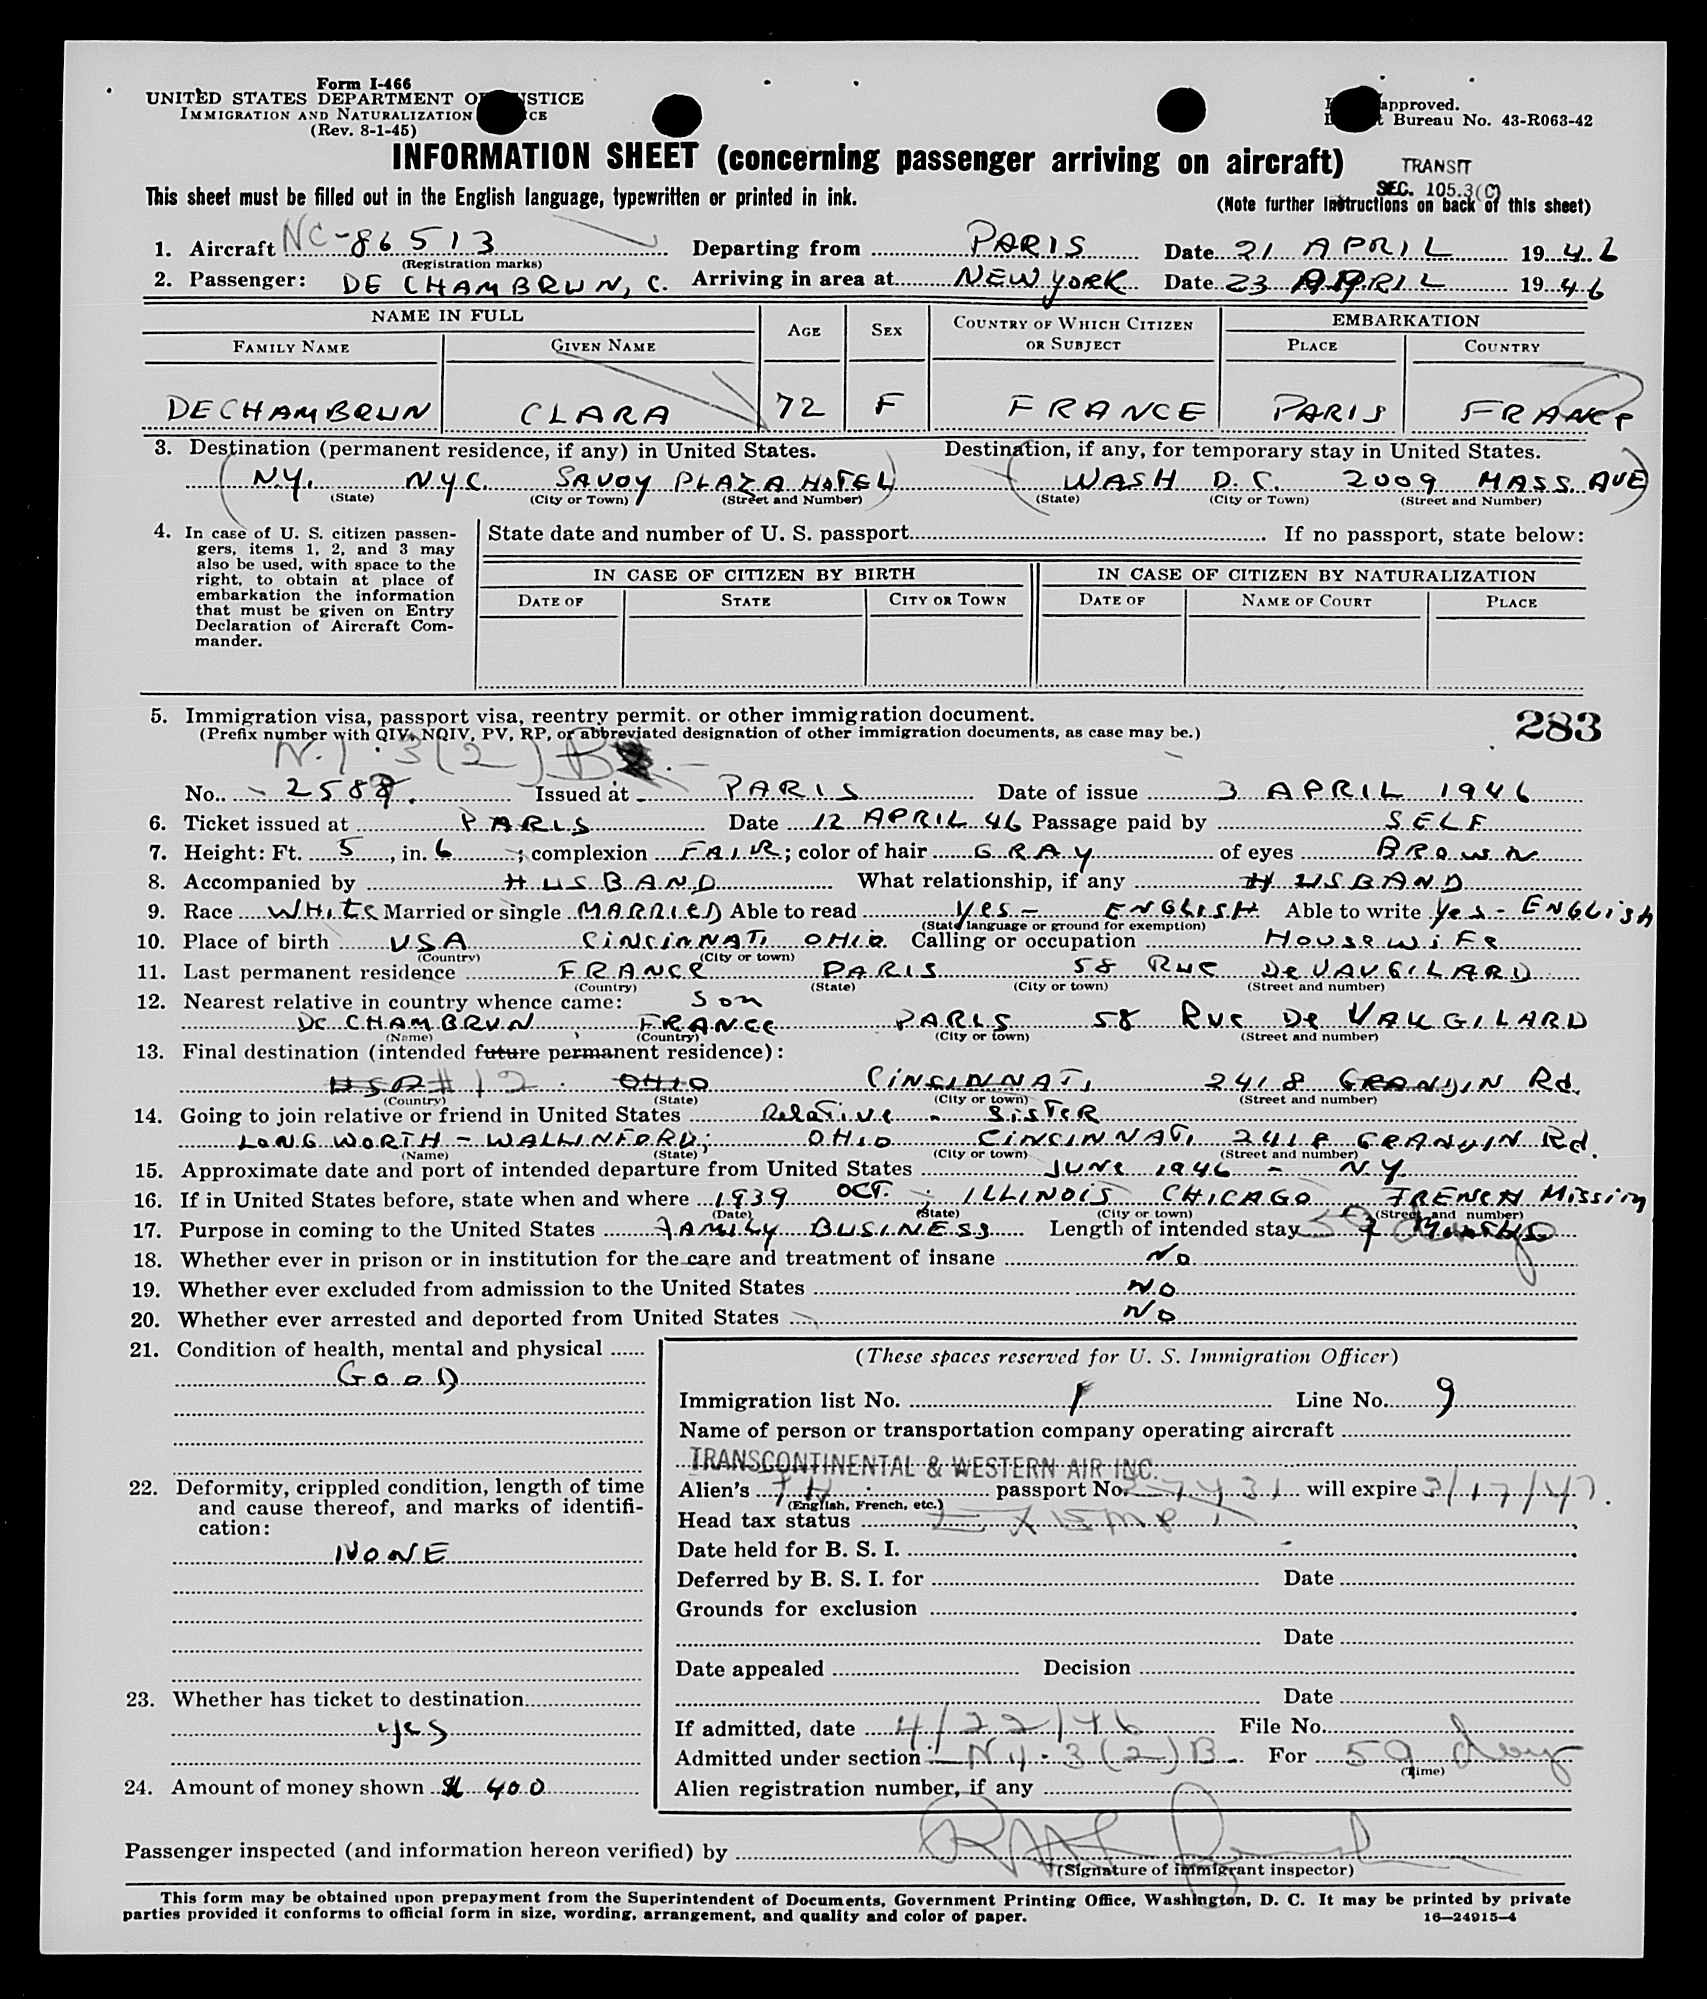 Form I-466
UNITED STATES DEPARTMENT OF JUSTICE
IMMIGRATION AND NATURALIZATION
(Rev. 8-1-45)
approved.
Bureau No. 43-R063-42
INFORMATION SHEET (concerning passenger arriving on aircraft)
TRANSIT
SEC. 105.3(C)
This sheet must be filled out in the English language, typewritten or printed in ink.
(Note further instructions on back of this sheet)
1. Aircraft NC-86513 Departing from PARIS Date 21 APRIL 1946
(Registration marks)
2. Passenger: DE CHAMBRUN, C. Arriving in area at NEW YORK Date 23 APRIL 1946
NAME IN FULL AGE SEX COUNTRY OF WHICH CITIZEN OR SUBJECT EMBARKATION
FAMILY NAME GIVEN NAME PLACE COUNTRY
DECHAMBRUN CLARA 72 F FRANCE PARIS FRANCE
3. Destination (permanent residence, if any) in United States. Destination, if any, for temporary stay in United States.
N.Y. NYC. SAVOY PLAZA HOTEL WASH D.C. 2009 MASS. AVE
(State) (City or Town) (Street and Number) (State) (City or Town) (Street and Number)
4. In case of U. S. citizen passengers, items 1, 2, and 3 may also be used, with space to the right, to obtain at place of embarkation the information that must be given on Entry Declaration of Aircraft Commander.
State date and number of U. S. passport If no passport, state below:
IN CASE OF CITIZEN BY BIRTH IN CASE OF CITIZEN BY NATURALIZATION
DATE OF STATE CITY OR TOWN DATE OF NAME OF COURT PLACE
5. Immigration visa, passport visa, reentry permit. or other immigration document.
283
(Prefix number with QIV, NQIV, PV, RP, or abbreviated designation of other immigration documents, as case may be.)
3(2)B
No. 2588 Issued at PARIS Date of issue 3 APRIL 1946
6. Ticket issued at PARIS Date 12 APRIL 46 Passage paid by SELF
7. Height: Ft. 5, in. 6; complexion FAIR; color of hair GRAY of eyes BROWN
8. Accompanied by HUSBAND What relationship, if any HUSBAND
9. Race WHITE Married or single MARRIED Able to read YES - ENGLISH Able to write YES - ENGLISH
(State language or ground for exemption)
10. Place of birth USA CINCINNATI OHIO. Calling or occupation HOUSEWIFE
(Country) (City or town)
11. Last permanent residence FRANCE PARIS 58 RUE DE VAUGILARD
(Country) (State) (City or town) (Street and number)
12. Nearest relative in country whence came: SON
DE CHAMBRUN, FRANCE PARIS 58 RUE DE VAUGILARD
(Name) (Country) (City or town) (Street and number)
13. Final destination (intended future permanent residence):
USA #12 OHIO CINCINNATI 2418 GRANDIN Rd.
(Country) (State) (City or town) (Street and number)
14. Going to join relative or friend in United States RELATIVE - SISTER
LONGWORTH - WALLINFORD; OHIO CINCINNATI 2418 GRANDIN Rd.
(Name) (State) (City or town) (Street and number)
15. Approximate date and port of intended departure from United States JUNE 1946 - N.Y.
16. If in United States before, state when and where 1939 OCT. ILLINOIS CHICAGO FRENCH Mission
(Date) (State) (City or town) (Street and number)
17. Purpose in coming to the United States FAMILY BUSINESS Length of intended stay 59
18. Whether ever in prison or in institution for the care and treatment of insane NO
19. Whether ever excluded from admission to the United States NO
20. Whether ever arrested and deported from United States NO
21. Condition of health, mental and physical
GOOD
22. Deformity, crippled condition, length of time and cause thereof, and marks of identification:
NONE
23. Whether has ticket to destination
yes
24. Amount of money shown $ 400
(These spaces reserved for U. S. Immigration Officer)
Immigration list No. 1 Line No. 9
Name of person or transportation company operating aircraft
TRANSCONTINENTAL & WESTERN AIR INC.
Alien's passport No. will expire 3/17/47.
(English, French, etc.)
Head tax status EXEMPT
Date held for B. S. I.
Deferred by B. S. I. for Date
Grounds for exclusion
Date
Date appealed Decision
Date
If admitted, date 4/22/46 File No.
Admitted under section 3(2)B For 59 days
(Time)
Alien registration number, if any
Passenger inspected (and information hereon verified) by
(Signature of immigrant inspector)
This form may be obtained upon prepayment from the Superintendent of Documents, Government Printing Office, Washington, D. C. It may be printed by private
parties provided it conforms to official form in size, wording, arrangement, and quality and color of paper.
16—24915-4